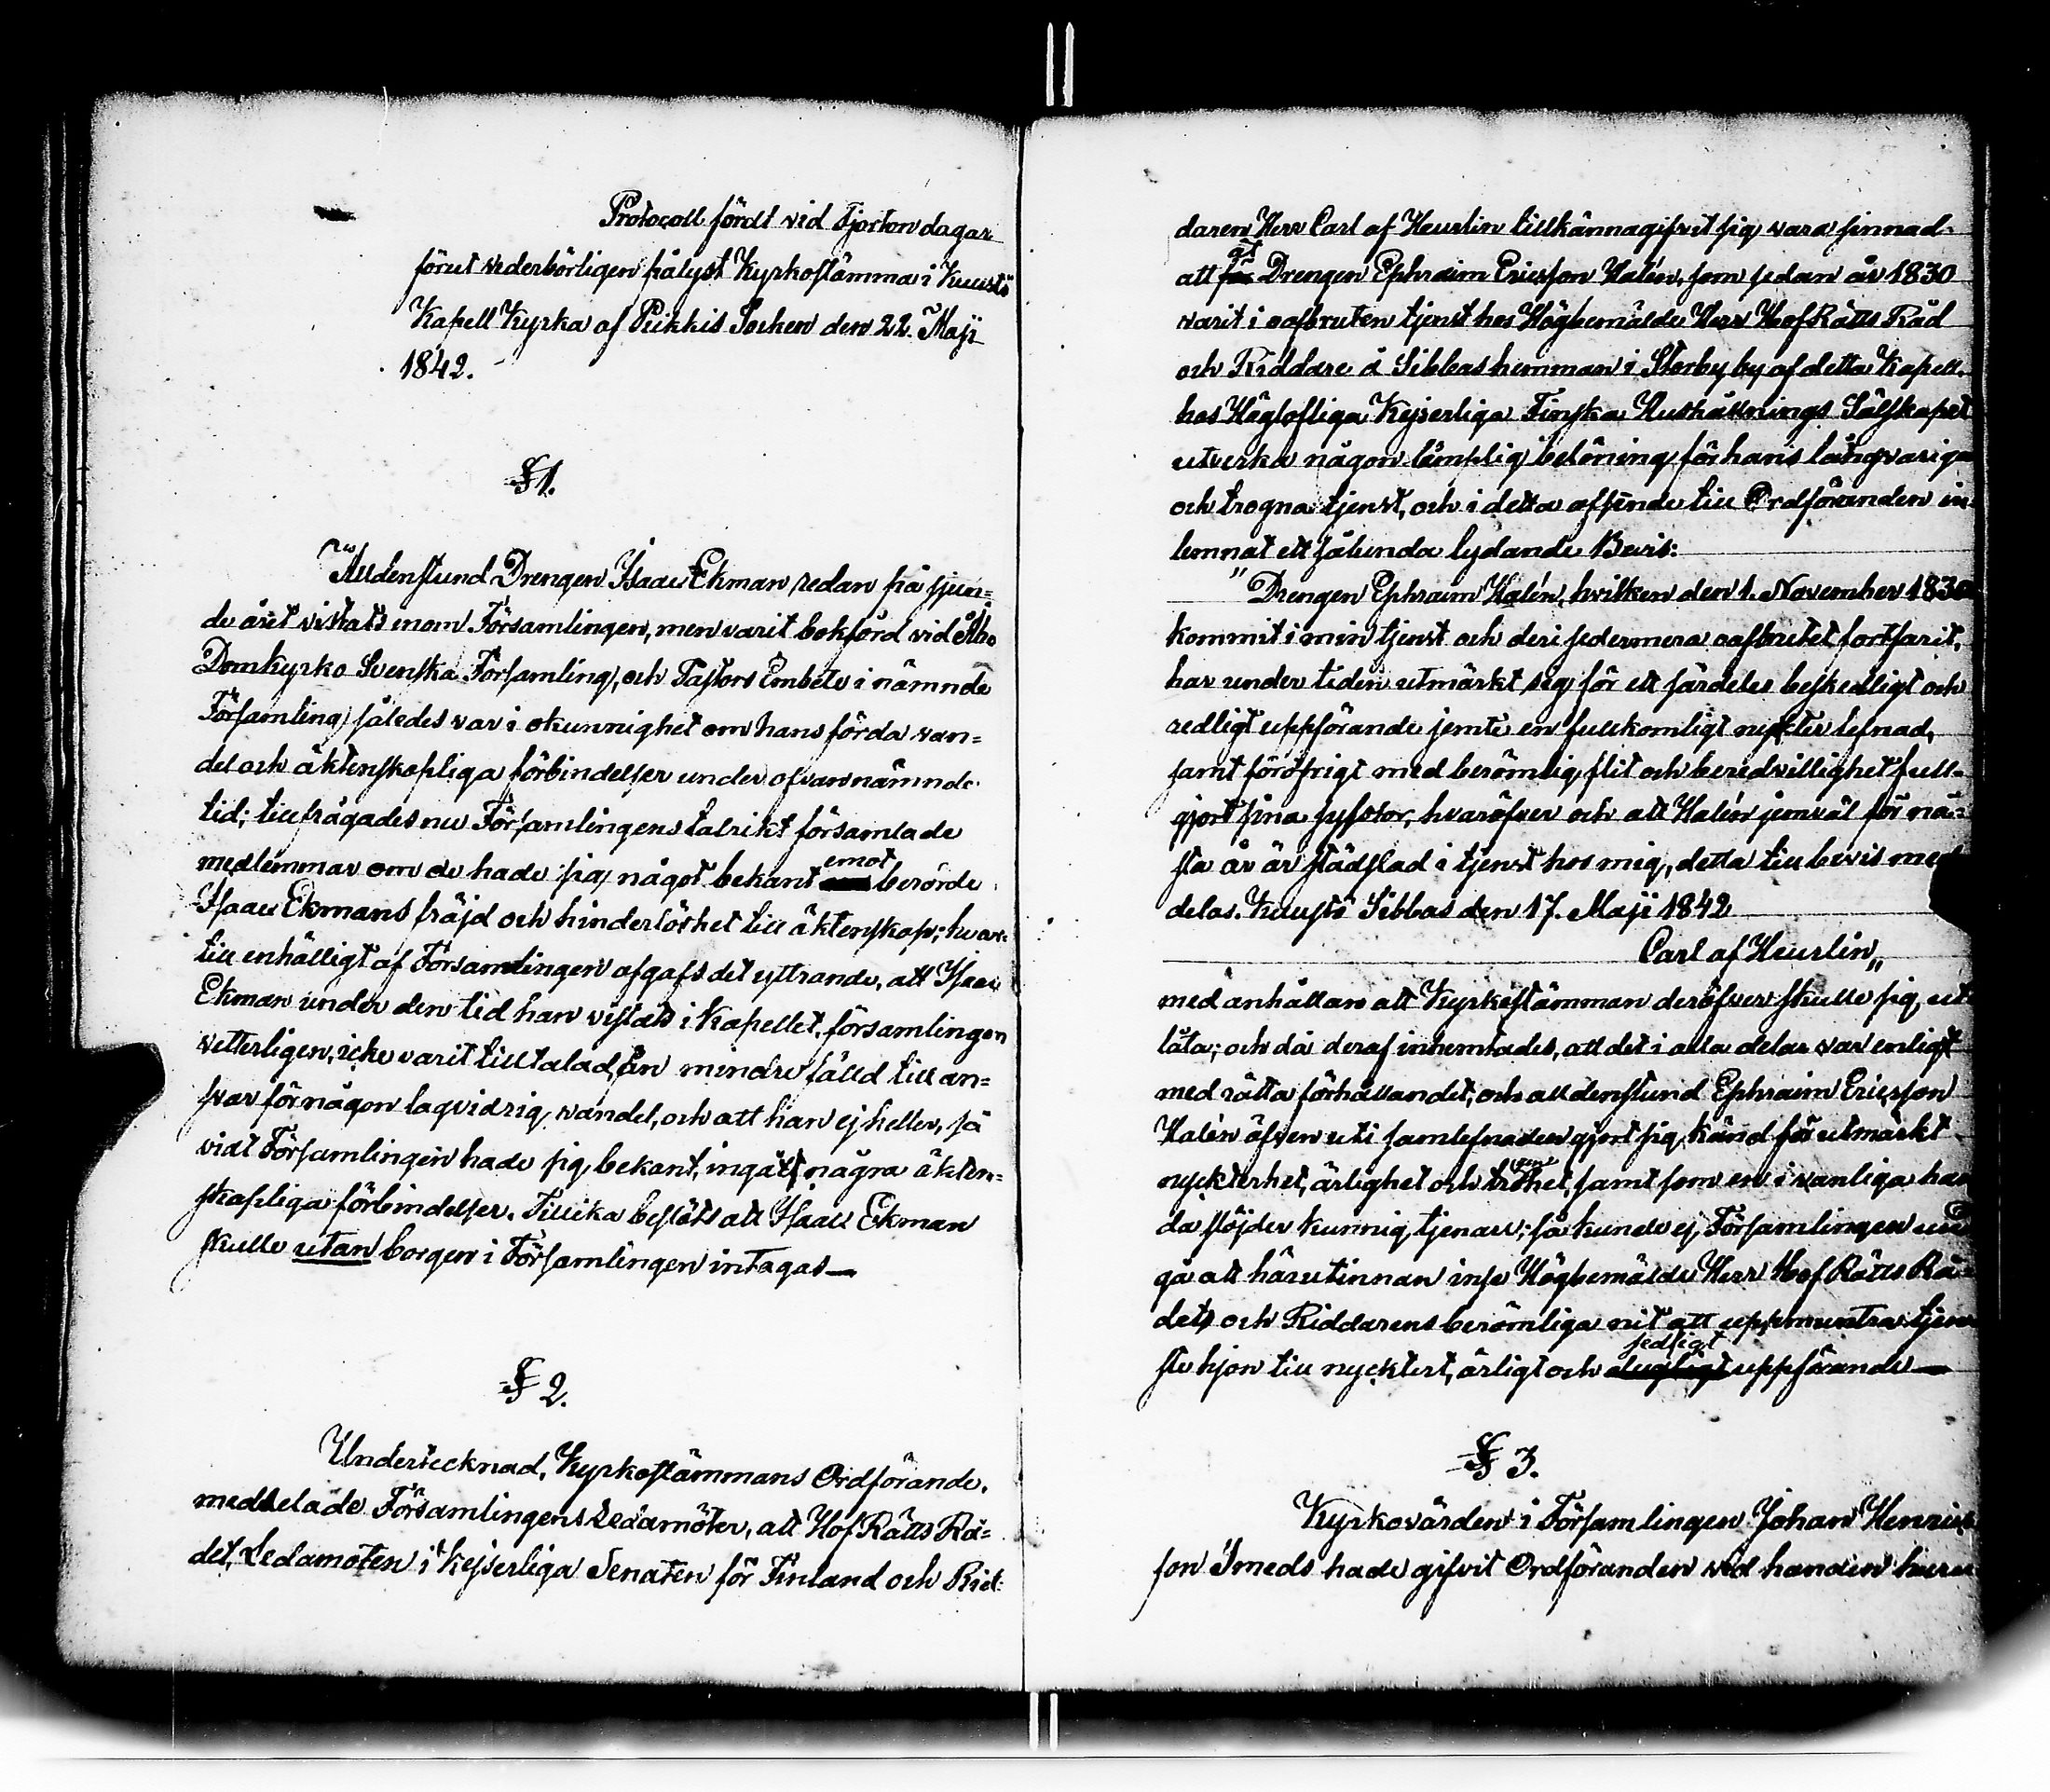 Protocoll fördt vid Fjorton dagar
förut vederbörligen pålyst Kyrkostämma i Kuustö
Kapell Kyrka af Pikkis Socken den 22. Maji
1842.
§ 1.
Alldenstund Drengen Isaac Ekman redan på sjun-
de året vistats inom Församlingen, men varit bokförd vid Åbo
Domkyrko Svenska Församling, och Pastors Embete i nämnde
Församling således var i okunnighet om hans förda van-
del och äktenskapliga förbindelser under ofvannämnde
tid; tillfrågades nu Församlingens talrikt församlade
medlemmar om de hade sig något bekant emot berörde
Isaac Ekmans fräjd och hinderlöshet till äktenskap; hvar-
till enhälligt af Församlingen afgafs det yttrande, att Isaac
Ekman under den tid han vistats i Kapellet, församlingen
vetterligen, icke varit tilltalad, än mindre fälld till an-
svar för någon lagvidrig vandel, och att han ej heller, så
vidt Församlingen hade sig bekant, ingått några äkten-
skapliga förbindelser. Tillika beslöts att Isaac Ekman
skulle utan borgen i Församlingen intagas—
§ 2.
Undertecknad, Kyrkostämmans Ordförande,
meddelade Församlingens Ledamöter, att HofRätts Rå-
det, Ledamoten i Kejserliga Senaten för Finland och Rid-
daren Herr Carl af Heurlin tillkännagifvit sig vara sinnad
att åt Drengen Ephraim Ericsson Halén, som sedan år 1830
varit i oafbruten tjenst hos Högbemälde Herr HofRätts Råd
och Riddare å Sibbas hemman i Storby by af detta Kapell,
hos Höglofliga Kejserliga Finska Hushållnings Sälskapet
utverka någon lämplig belöning för hans långvariga
och trogna tjenst, och i detta afseende till Ordföranden in-
lemnat ett sålunda lydande Bevis:
"Drengen Ephraim Halén, hvilken den 1. November 1830
kommit i min tjenst och deri sedermera oafbrutet fortfarit,
har under tiden utmärkt sig för ett särdeles beskedligt och
redligt uppförande jemte en fullkomligt nykter lefnad,
samt föröfrigt med berömlig flit och beredvillighet full-
gjort sina sysslor, hvaröfver och att Halén jemväl för nä-
sta år är städslad i tjenst hos mig, detta till bevis med-
delas. Kuustö Sibbas den 17. Maji 1842
Carl af Heurlin"
med anhållan att Kyrkostämman deröfver skulle sig ut-
låta; och då deraf inhemtades, att det i alla delar var enligt
med rätta förhållandet, och alldenstund Ephraim Ericsson
Halén äfven uti samlefnaden gjort sig känd för utmärkt
nyckterhet, ärlighet och trohet, samt som en i vanliga han-
da slöjder kunnig tjenare; så kunde ej Församlingen und-
gå att härutinnan inse Högbemälde Herr HofRätts Rå-
dets och Riddarens berömliga nit att uppmuntra tjen-
ste hjon till nycktert, ärligt och sedligt uppförande—
§ 3.
Kyrkovärden i Församlingen Johan Henrics-
son Smeds hade gifvit Ordföranden vid handen huru